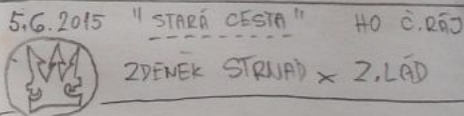 5.6.2015 "STARÁ CESTA" HO Č.RÁJ
ZDENĚK STRNAD × Z.LÁD